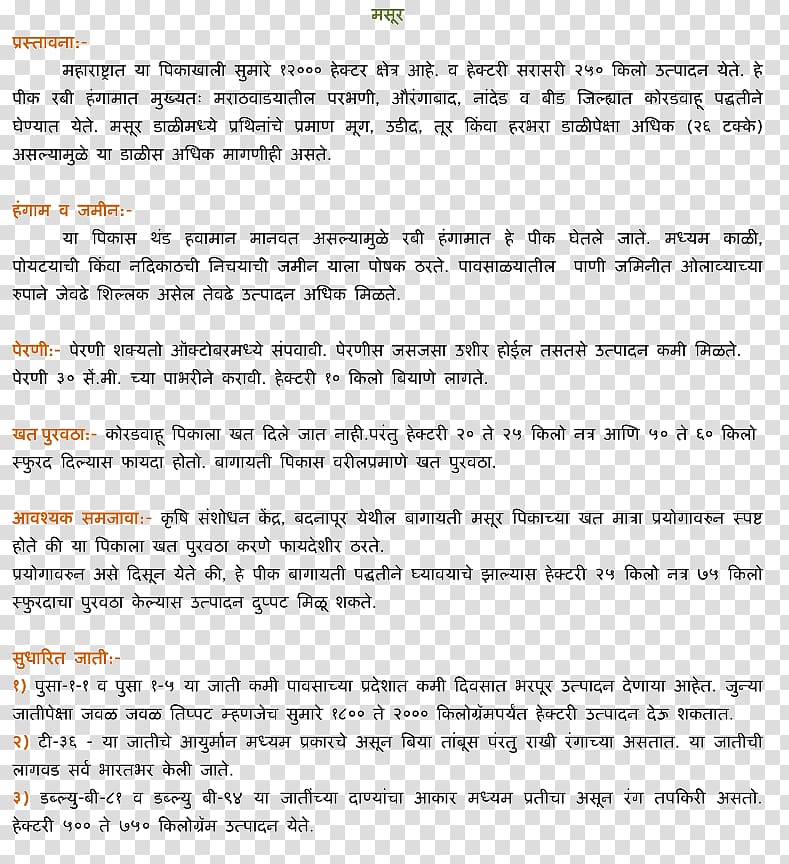 मसूर
प्रस्तावना:-
महाराष्ट्रात या पिकाखाली सुमारे १२००० हेक्टर क्षेत्र आहे. व हेक्टरी सरासरी २५० किलो उत्पादन येते. हे
पीक रबी हंगामात मुख्यतः मराठवाडयातील परभणी, औरंगाबाद, नांदेड व बीड जिल्ह्यात कोरडवाहू पद्धतीने
घेण्यात येते. मसूर डाळीमध्ये प्रथिनांचे प्रमाण मूग, उडीद, तूर किंवा हरभरा डाळीपेक्षा अधिक (२६ टक्के)
असल्यामुळे या डाळीस अधिक मागणीही असते.
हंगाम व जमीन:-
या पिकास थंड हवामान मानवत असल्यामुळे रबी हंगामात हे पीक घेतले जाते. मध्यम काळी,
पोयटयाची किंवा नदिकाठची निचयाची जमीन याला पोषक ठरते. पावसाळयातील पाणी जमिनीत ओलाव्याच्या
रुपाने जेवढे शिल्लक असेल तेवढे उत्पादन अधिक मिळते.
पेरणी:- पेरणी शक्यतो ऑक्टोबरमध्ये संपवावी. पेरणीस जसजसा उशीर होईल तसतसे उत्पादन कमी मिळते.
पेरणी ३० सें.मी. च्या पाभरीने करावी. हेक्टरी १० किलो बियाणे लागते.
खत पुरवठा:- कोरडवाहू पिकाला खत दिले जात नाही.परंतु हेक्टरी २० ते २५ किलो नत्र आणि ५० ते ६० किलो
स्फुरद दिल्यास फायदा होतो. बागायती पिकास वरीलप्रमाणे खत पुरवठा.
आवश्यक समजावा:- कृषि संशोधन केंद्र, बदनापूर येथील बागायती मसूर पिकाच्या खत मात्रा प्रयोगावरुन स्पष्ट
होते की या पिकाला खत पुरवठा करणे फायदेशीर ठरते.
प्रयोगावरुन असे दिसून येते की, हे पीक बागायती पद्धतीने घ्यावयाचे झाल्यास हेक्टरी २५ किलो नत्र ७५ किलो
स्फुरदाचा पुरवठा केल्यास उत्पादन दुप्पट मिळू शकते.
सुधारित जाती:-
१) पुसा-१-१ व पुसा १-५ या जाती कमी पावसाच्या प्रदेशात कमी दिवसात भरपूर उत्पादन देणाया आहेत. जुन्या
जातीपेक्षा जवळ जवळ तिप्पट म्हणजेच सुमारे १८०० ते २००० किलोग्रॅमपर्यंत हेक्टरी उत्पादन देऊ शकतात.
२) टी-३६ - या जातीचे आयुर्मान मध्यम प्रकारचे असून बिया तांबूस पंरतु राखी रंगाच्या असतात. या जातीची
लागवड सर्व भारतभर केली जाते.
३) डब्ल्यु-बी-८१ व डब्ल्यु बी-९४ या जातींच्या दाण्यांचा आकार मध्यम प्रतीचा असून रंग तपकिरी असतो.
हेक्टरी ५०० ते ७५० किलोग्रॅम उत्पादन येते.